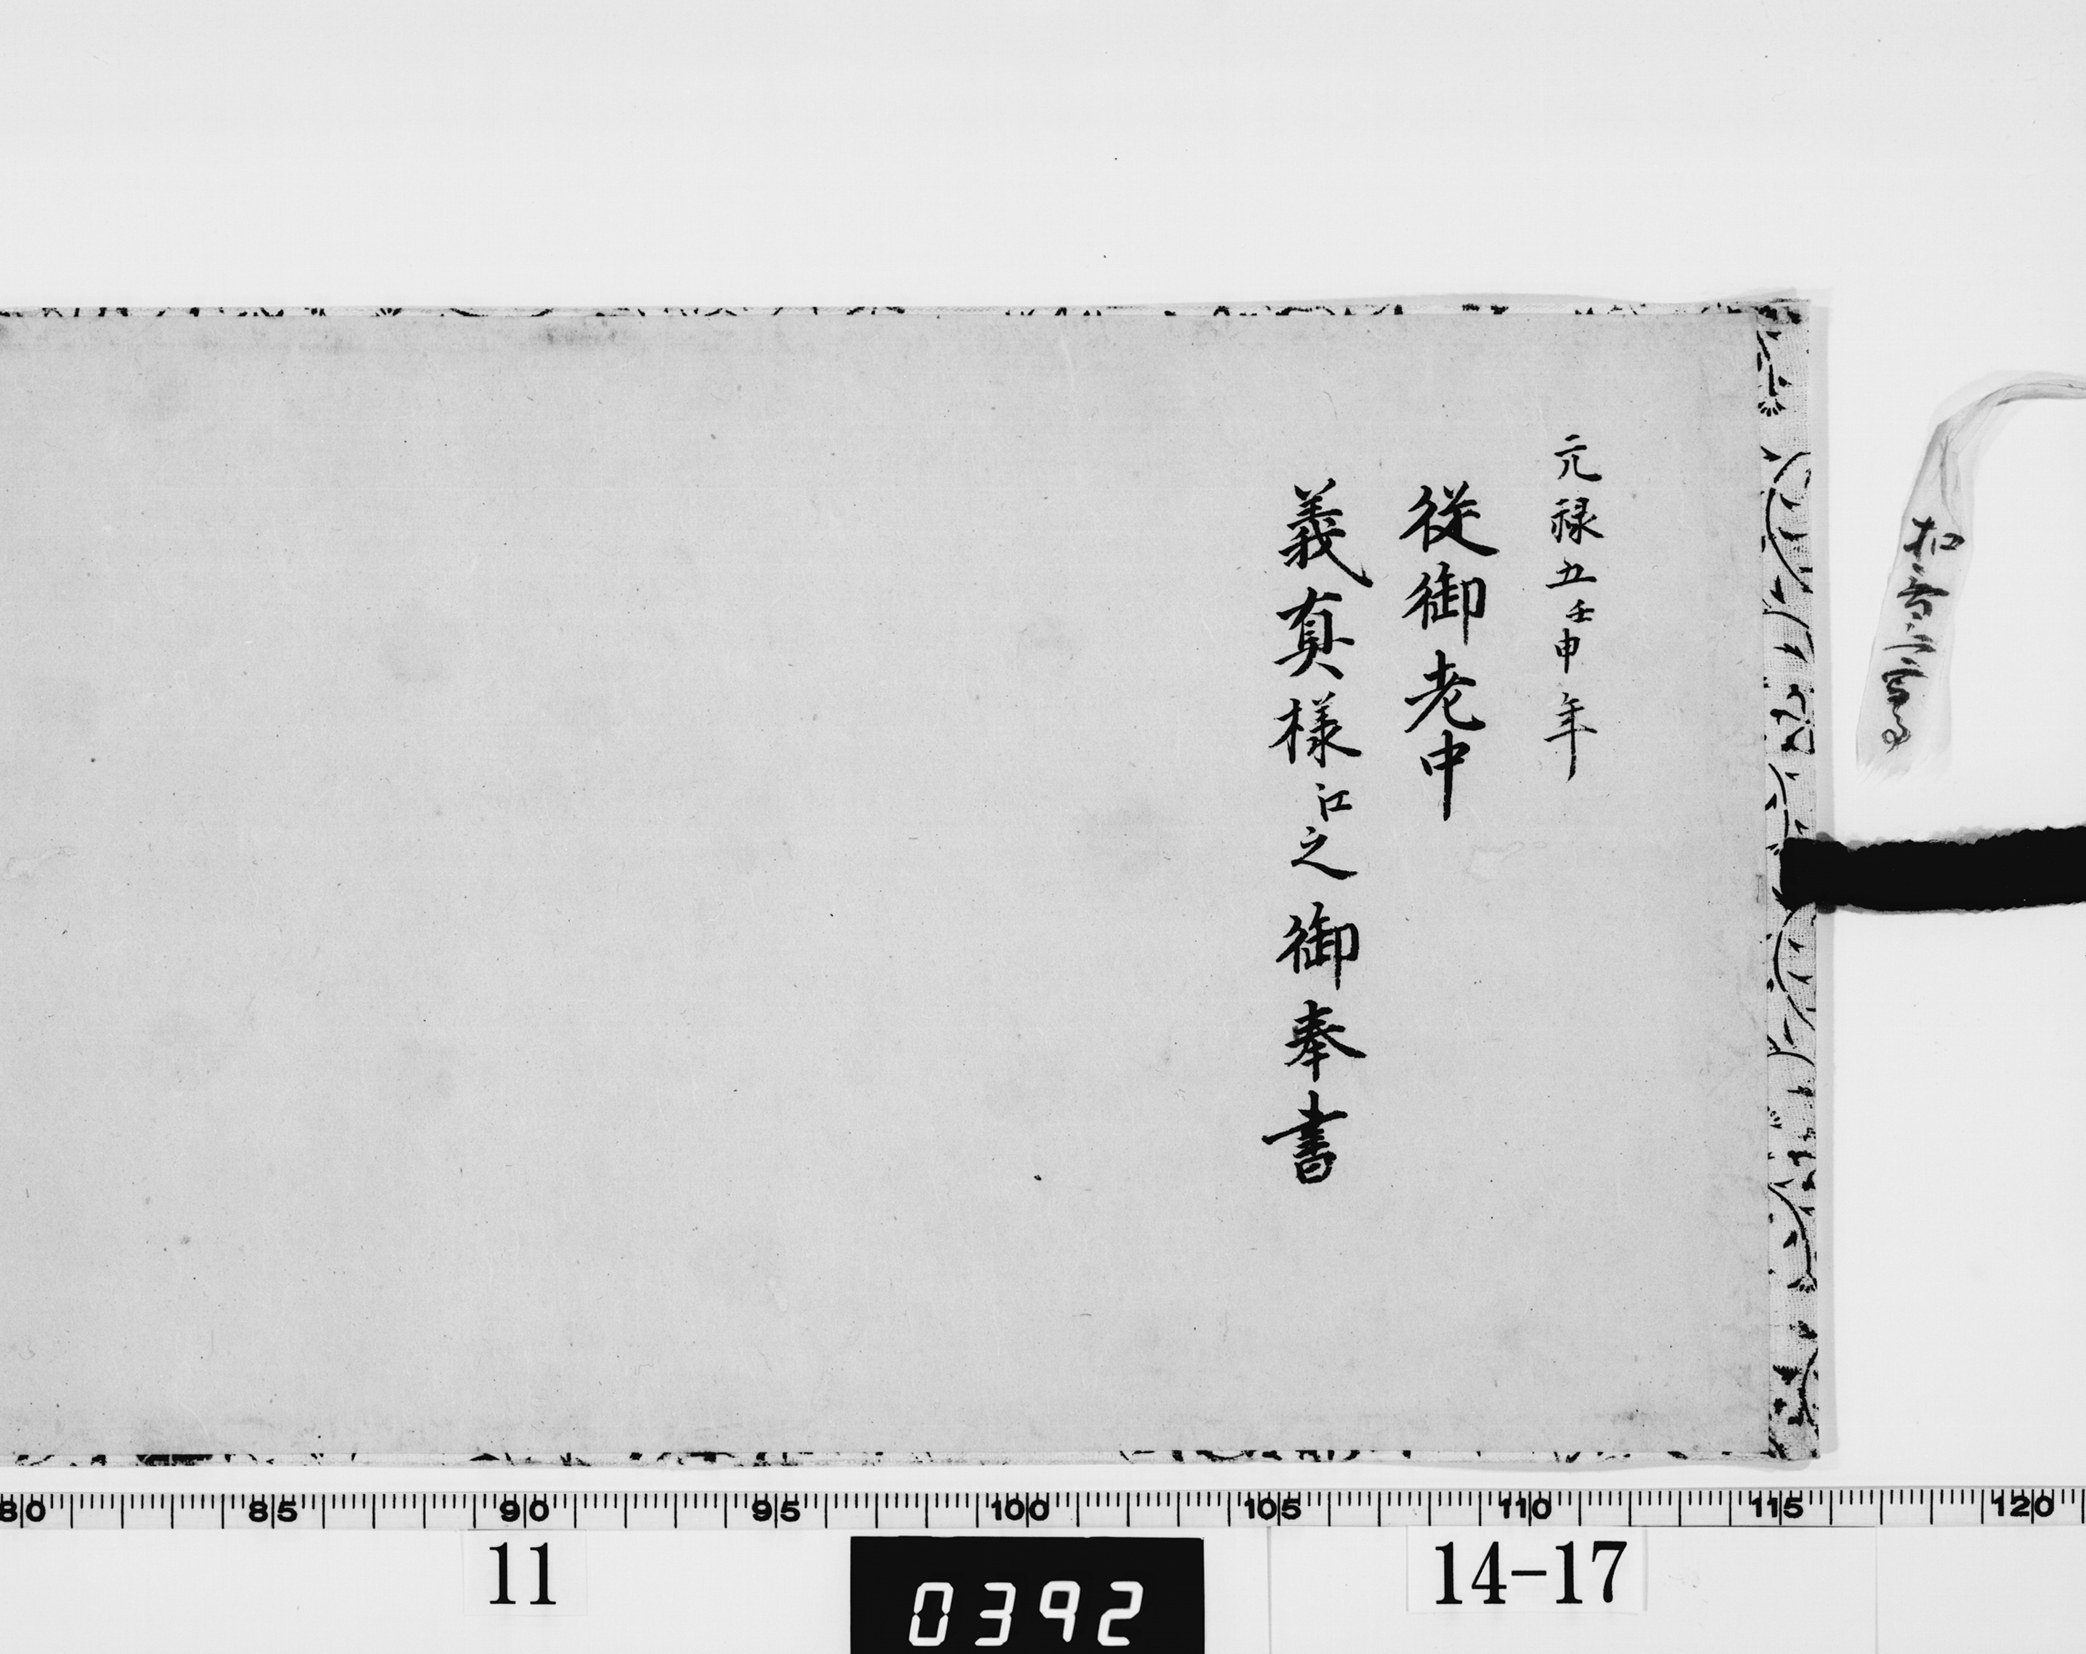 元禄五壬申年
従御老中
義真様江之御奉書
80 85 90 95 100 105 110 115 120
11
0392
14-17